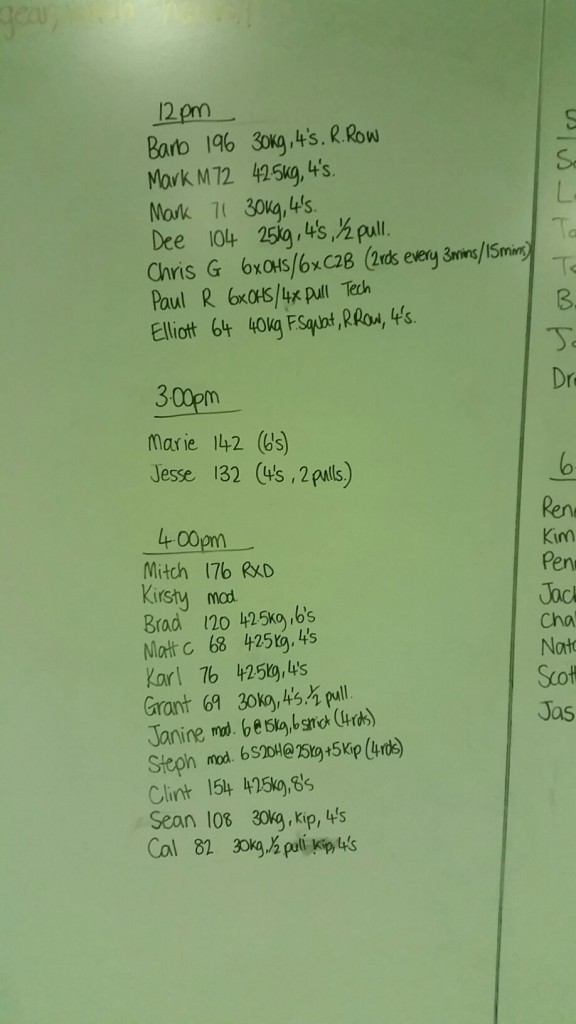 gear,
12pm
Barb 196 30kg, 4's. R.Row
Mark M 72 42.5kg, 4's.
Mark 71 30kg, 4's.
Dee 104 25kg, 4's, 1/2 pull.
Chris G 6xOHS/6xC2B (2rds every 3mins/15mins)
Paul R 6xOHS/4x Pull Tech
Elliott 64 40kg F.Squat, R.Row, 4's.
3.00pm
Marie 142 (6's)
Jesse 132 (4's, 2 pulls.)
4.00pm
Mitch 176 RXD
Kirsty mod.
Brad 120 42.5kg, 6's
Matt C 68 42.5kg, 4's
Karl 76 42.5kg, 4's
Grant 69 30kg, 4's. 1/2 pull.
Janine mod. 6@15kg, 6 strict (4rds)
Steph mod. 6 S2OH@25kg+5Kip (4rds)
Clint 154 42.5kg, 8's
Sean 108 30kg, kip, 4's
Cal 82 30kg, 1/2 pull kip, 4's
S
So
L
To
To
B
Jo
Dr
6
Ren
Kim
Pen
Jack
Cha
Nat
Scott
Jas